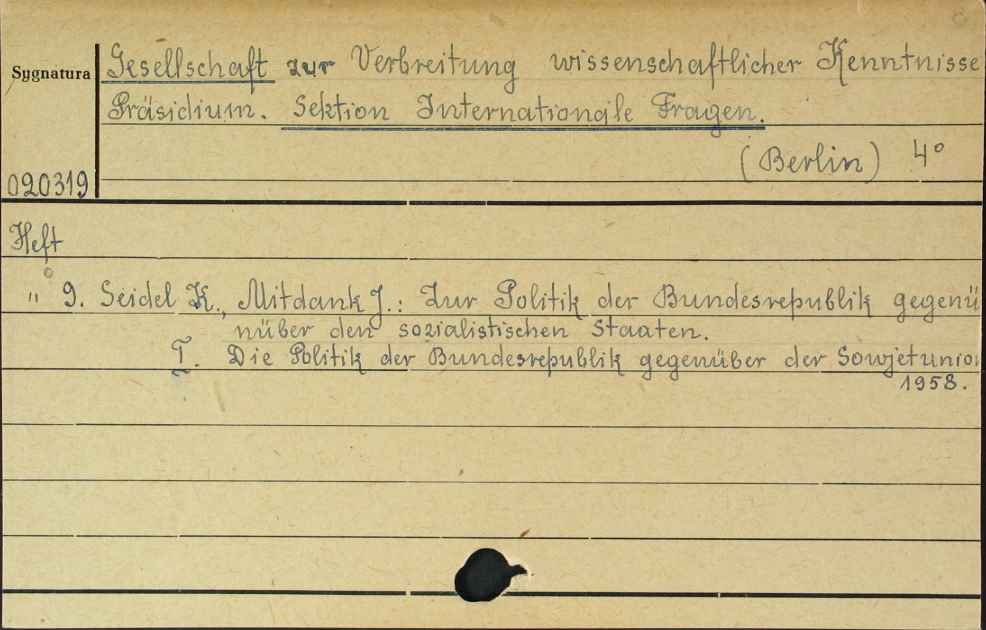 Sygnatura Gesellschaft zur Verbreitung wissenschaftlicher Kenntnisse
Präsidium. Sektion Internationale Fragen.
(Berlin) 4°
020319
Heft
" 9. Seidel K., Mitdank J.: Zur Politik der Bundesrepublik gegenü
nüber den sozialistischen Staaten.
T. Die Politik der Bundesrepublik gegenüber der Sowjetunion
1958.